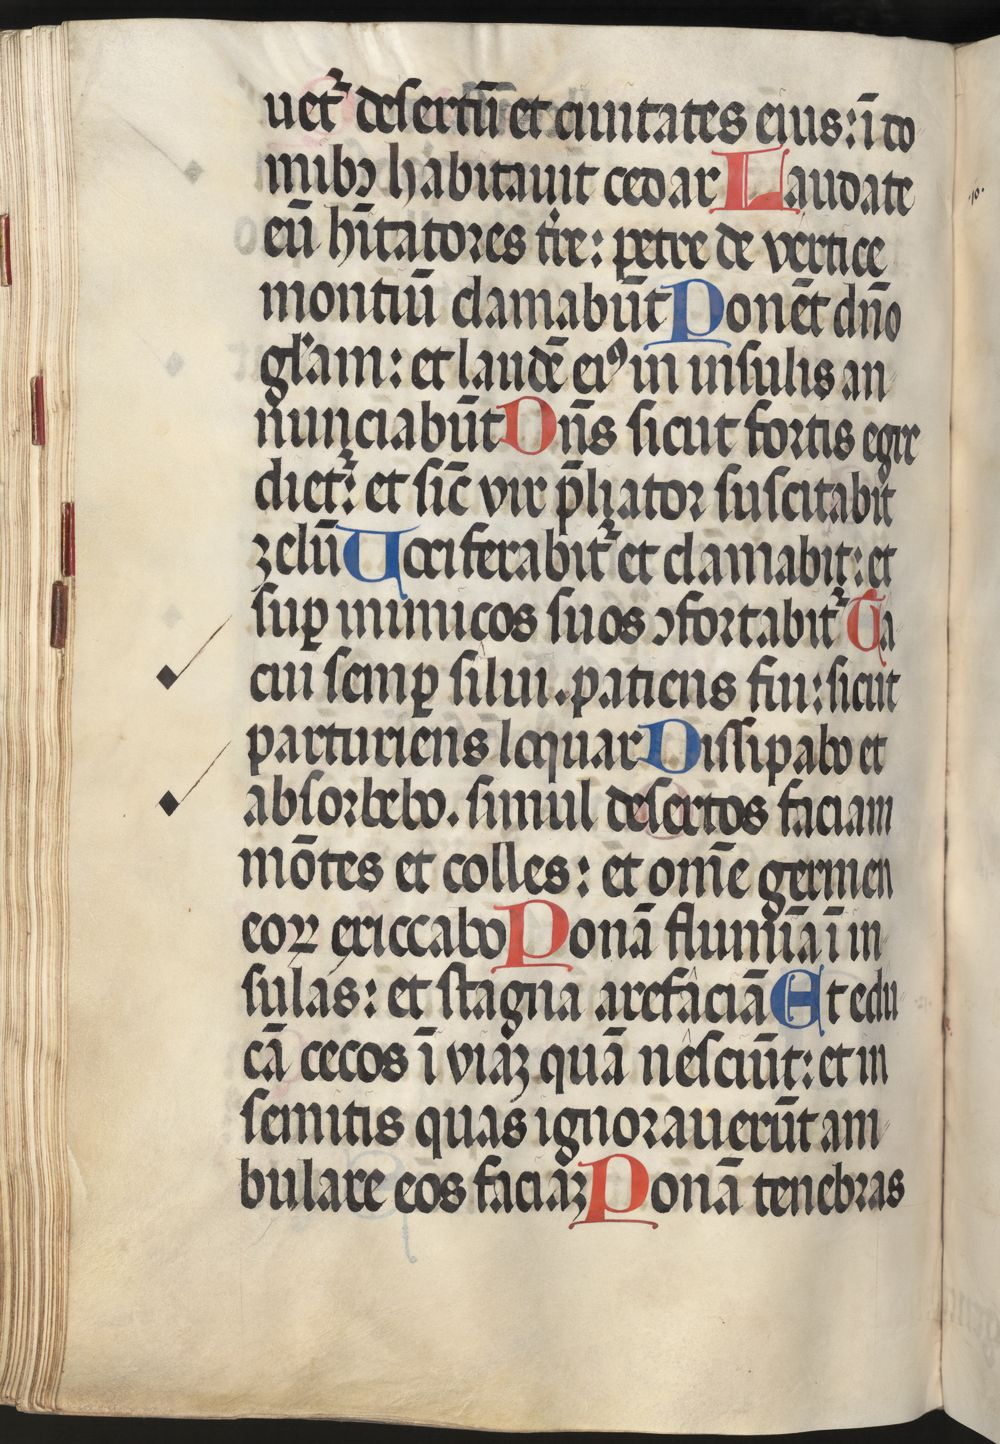 uet᷑ desertū et ciuitates eius: ī do
mibꝫ habitauit cedar Laudate
eū hītatores tr̄e: petre de vertice
montiū clamabūt Ponēt dn̄o
gl̄am: et laudē eiꝰ in insulis an
nunciabūt Dn̄s sicut fortis egre
diet᷑: et sic̄ vir p̄liator suscitabit
zelū Uociferabit᷑ et clamabit: et
suꝑ inimicos suos ↄfortabit᷑ Ta
cui semꝑ silui. patiens fui: sicut
parturiens loquar Dissipabo et
absorbebo. simul desertos faciam
mōtes et colles: et om̄e germen
eoꝝ exiccabo Ponā flumīa ī in
sulas: et stagna arefaciā Et edu
cā cecos ī viaꝫ quā nesciūt: et in
semitis quas ignorauerūt am
bulare eos faciaꝫ Ponā tenebras